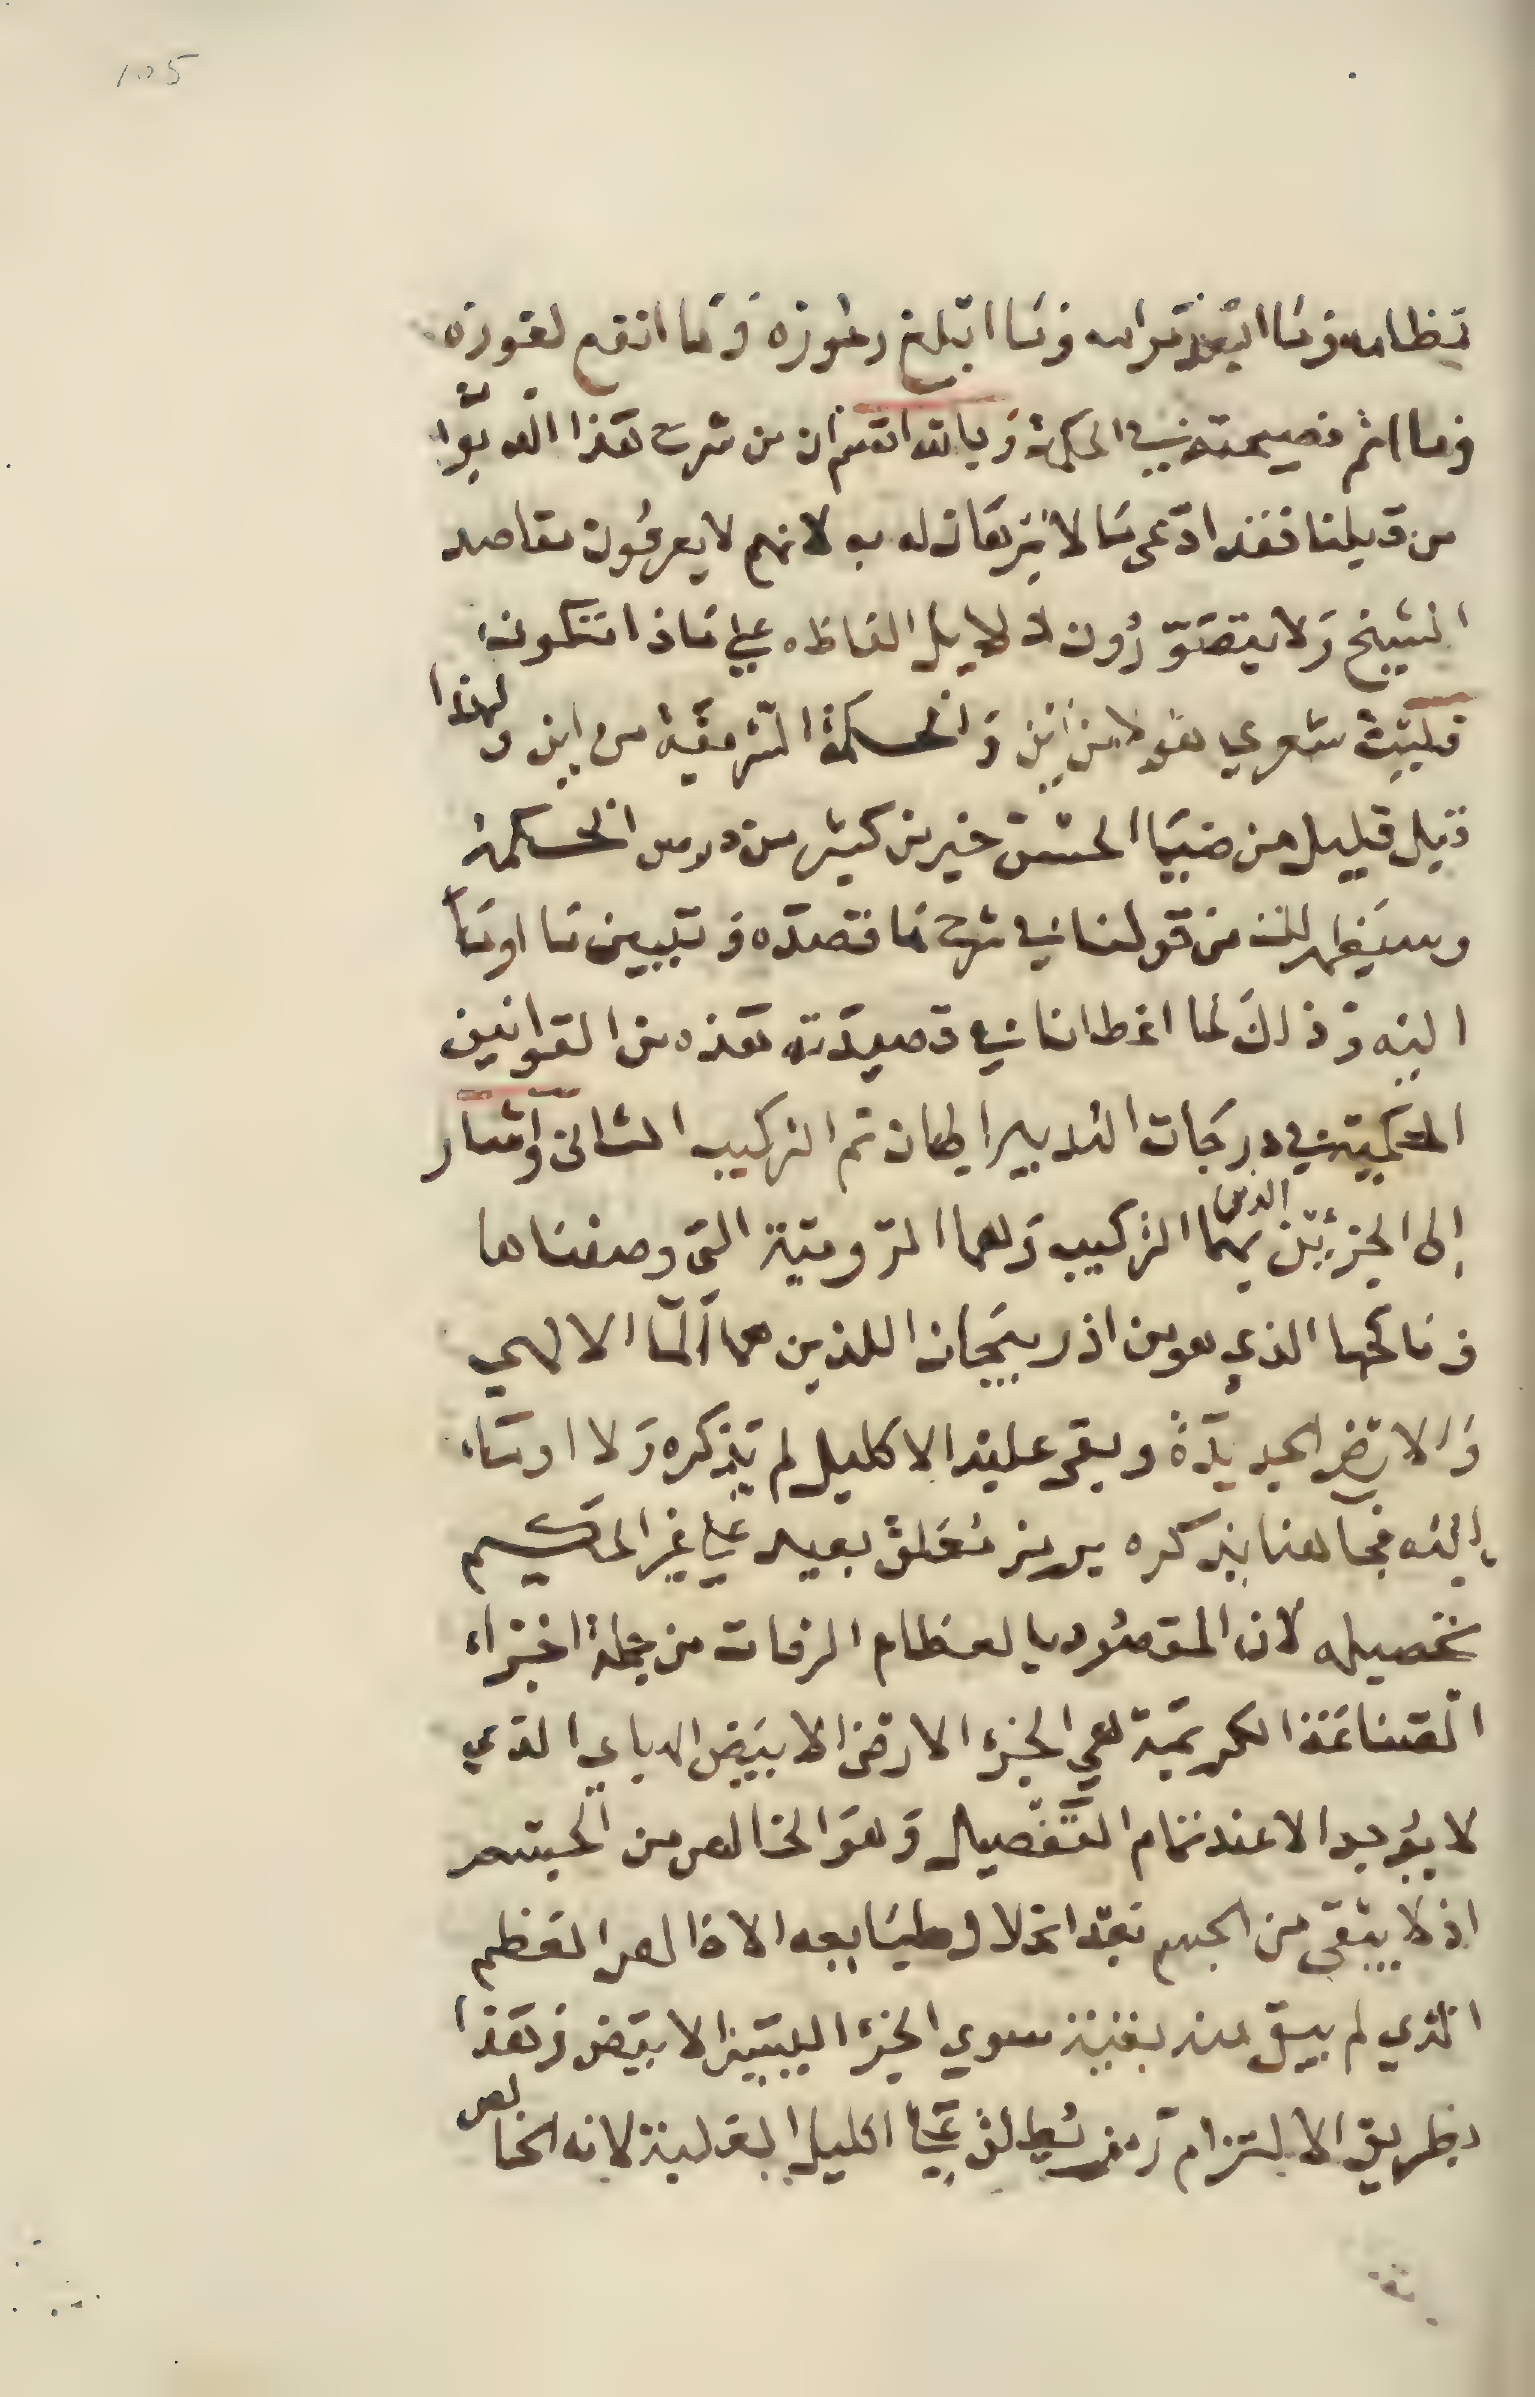 105
نظامه وما ابعد مرامه وما ابلغ رموزه وما انفع لغوزه
وما اتم فصيحته في الحكمة وبالله اقسم ان من شرح هذا الديوا
من قبلنا فقد ادعى ما لا برهان له به لانهم لا يعرفون مقاصد
الشيخ ولا يتصورون دلايل الفاظه على ماذا تتكون
فليت شعري هولا من اين والحكمة الشريفة من اين ولهذا
قيل قليل من ضيا الحسن خير من كثير من درس الحكمة
وسيظهر لك من قولنا في شرح ما قصده وتبيين ما اوما
اليه وذلك لما اعطانا في قصيدته هذه من القوانين
الحكمية في درجات التدبير الى ان تم التركيب الثاني واشار
الى الجزئين الذين بهما التركيب وهما الرومية التي وصفناها
وناكحها الذي هو من اذربيجان اللذين هما الما الالهي
والارض الجديدة وبقى عليه الاكليل لم يذكره ولا اوما
اليه فجا هنا بذكره برمز مغلق بعيد على غير الحكيم
تحصيله لان المقصود بالعظام الرفات من جملة اجزاء
الصناعة الكريمة هي الجزء الارضي الابيض الهبايي الذي
لا يوجد الا عند تمام التفصيل وهو الخالص من الجسد
اذ لا يبقى من الجسم بعد انحلال طبايعه الا خالص العظم
الذي لم يبق منه بقية سوي الجزء اليسير الابيض وهذا
بطريق الالتزام رمز يطلق على اكليل الغلبة لانه الخالص